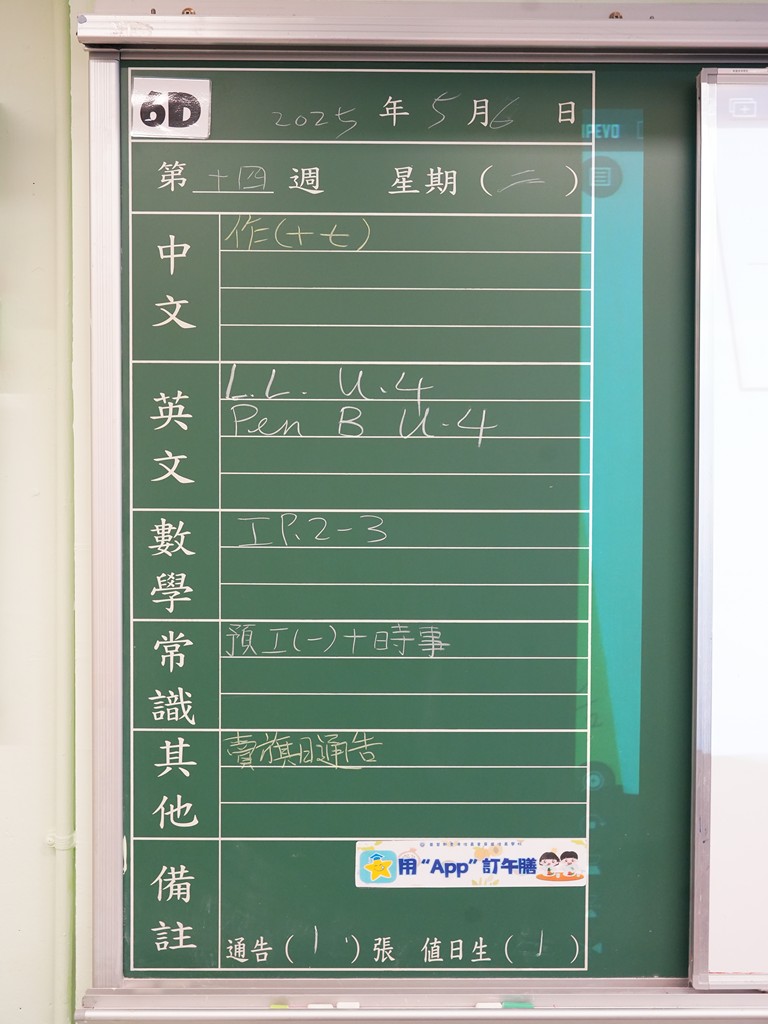 6D
2025 年 5 月 6 日
第 十四 週 星期 ( 二 )
中文
作(十七)
英文
L.L. U.4
Pen B U.4
數學
工 P.2-3
常識
預工(一)+時事
其他
賣旗日通告
備註
用 “App” 訂午膳
通告 ( 1 ) 張 值日生 ( 1 )
IPEVO